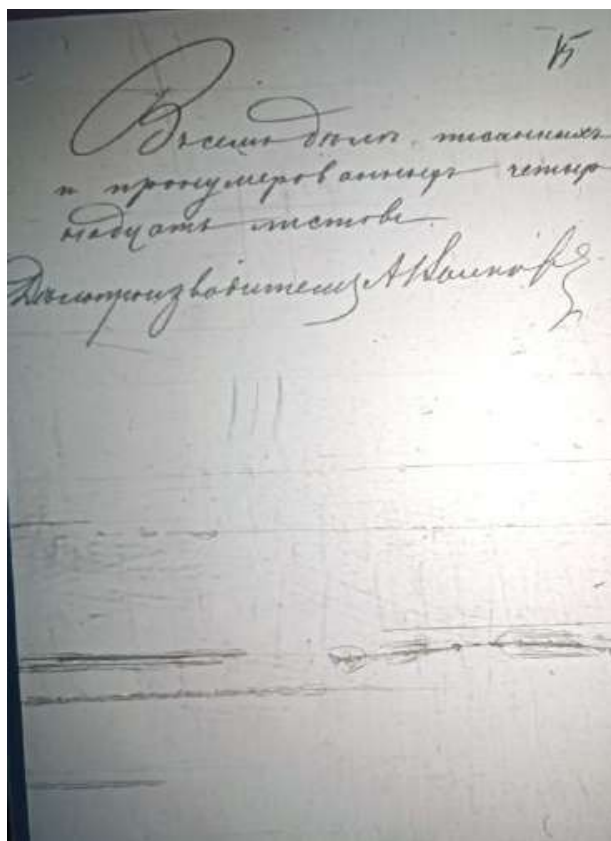 15
Въ семъ дѣлѣ писанныхъ
и пронумерованныхъ четыр
надцать листовъ
Дѣлопроизводитель А